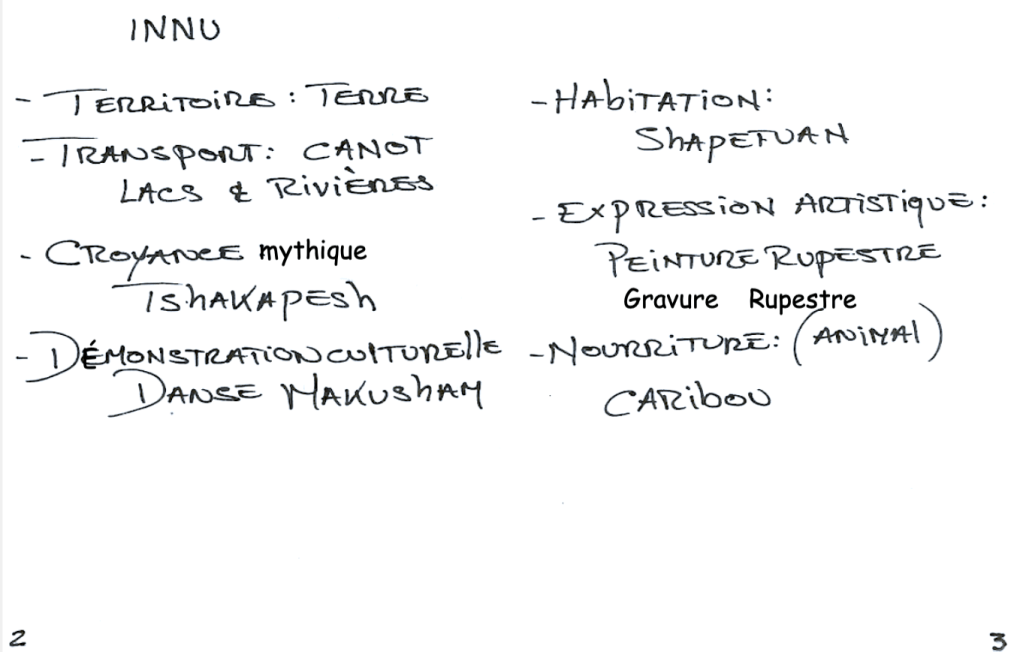 INNU
- TERRITOIRE : TERRE
- TRANSPORT: CANOT
LACS & RIVIÈRES
- CROYANCE mythique
TSHAKAPESH
- DÉMONSTRATION CULTURELLE
DANSE MAKUSHAM
2
- HABITATION:
SHAPETUAN
- EXPRESSION ARTISTIQUE:
PEINTURE RUPESTRE
Gravure Rupestre
- NOURRITURE: (ANIMAL)
CARIBOU
3